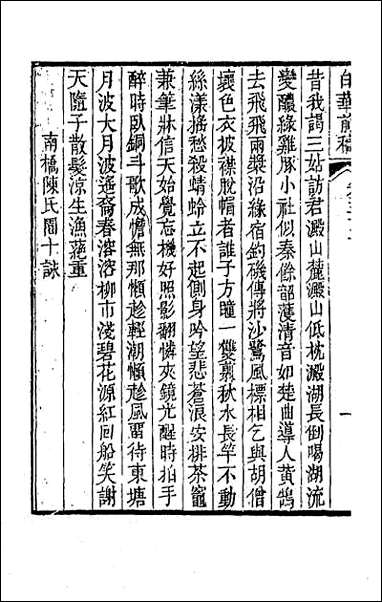 白華前稿
昔我謁三姑訪君澱山麓澱山低枕澱湖長倒喝湖流
變醲綠雞豚小社似秦餘韶濩清音如楚曲導人黃鵠
去飛飛兩槳沿緣宿釣磯傳將沙鷺風標相乞與胡僧
壞色衣披襟脫帽者誰子方瞳一雙剪秋水長竿不動
絲漾搖愁殺蜻蛉立不起側身吟望悲蒼浪安排茶竈
兼筆牀信天始覺忘機好照影翻憐夾鏡光醒時拍手
醉時臥銅斗歌成憺無那愼趁輕潮愼趁風畱待東塘
月波大月波遙裔春溶溶柳市淺碧花源紅回船笑謝
天隨子散髮涼生漁菰重
南橋陳氏園十詠
一